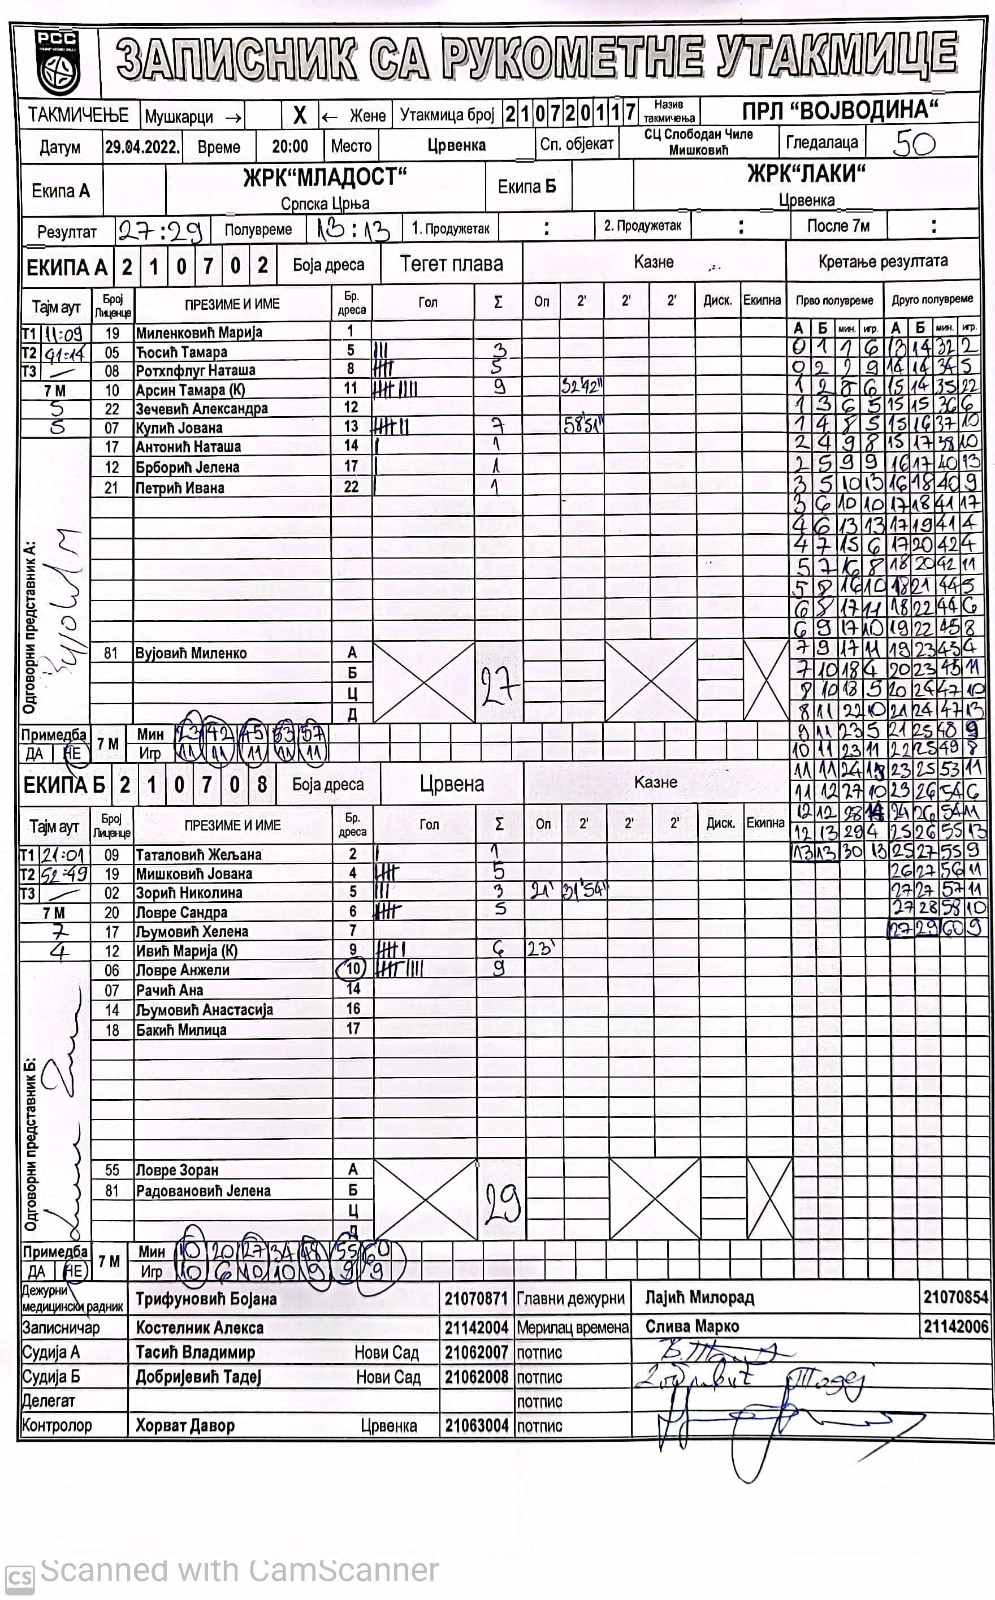 РСС
ЗАПИСНИК СА РУКОМЕТНЕ УТАКМИЦЕ
ТАКМИЧЕЊЕ Мушкарци → X ← Жене Утакмица број 210720117 Назив такмичења ПРЛ “ВОЈВОДИНА“
Датум 29.04.2022. Време 20:00 Место Црвенка Сп. објекат СЦ Слободан Чиле Мишковић Гледалаца 50
Екипа А ЖРК“МЛАДОСТ“ Српска Црња Екипа Б ЖРК“ЛАКИ“ Црвенка
Резултат 27:29 Полувреме 13:13 1. Продужетак : 2. Продужетак : После 7м :
ЕКИПА А 2 1 0 7 0 2 Боја дреса Тегет плава Казне Кретање резултата
Тајм аут Број Лиценце ПРЕЗИМЕ И ИМЕ Бр. дреса Гол Σ Оп 2' 2' 2' Диск. Екипна Прво полувреме Друго полувреме
А Б мин. игр. А Б мин. игр.
Т1 11:09 19 Миленковић Марија 1
Т2 41:14 05 Ћосић Тамара 5 3
Т3 — 08 Ротхпфлуг Наташа 8 5
7 М 10 Арсин Тамара (К) 11 9 52'42"
5 22 Зечевић Александра 12
5 07 Кулић Јована 13 7 58'51"
17 Антонић Наташа 14 1
12 Брборић Јелена 17 1
21 Петрић Ивана 22 1
Одговорни представник А:
81 Вујовић Миленко А
Б
Ц
Д
27
Примедба ДА НЕ 7 М Мин 23 42 45 53 57
Игр 11 11 11 11 11
0 1 1 6 13 14 32 2
0 2 2 9 14 14 34 5
1 2 6 6 15 14 35 22
1 3 6 5 15 15 36 6
1 4 8 5 15 16 37 10
2 4 9 8 15 17 38 10
2 5 9 9 16 17 40 13
3 5 10 13 16 18 40 9
3 6 10 10 17 18 41 17
4 6 13 13 17 19 41 4
4 7 15 6 17 20 42 4
5 7 16 8 18 20 42 11
5 8 16 10 18 21 44 5
6 8 17 11 18 22 44 6
6 9 17 10 19 22 45 8
7 9 17 11 19 23 45 4
7 10 18 4 20 23 45 11
8 10 18 5 20 24 47 10
8 11 22 10 21 24 47 13
9 11 23 5 21 25 48 9
10 11 23 11 22 25 49 8
11 11 24 13 23 25 53 11
11 12 27 10 23 26 54 6
12 12 28 14 24 26 54 11
12 13 29 4 25 26 55 13
13 13 30 13 25 27 55 9
26 27 56 11
27 27 57 11
27 28 58 10
27 29 60 9
ЕКИПА Б 2 1 0 7 0 8 Боја дреса Црвена Казне
Тајм аут Број Лиценце ПРЕЗИМЕ И ИМЕ Бр. дреса Гол Σ Оп 2' 2' 2' Диск. Екипна
Т1 21:01 09 Таталовић Жељана 2 1
Т2 52:49 19 Мишковић Јована 4 5
Т3 — 02 Зорић Николина 5 3 21' 31'54"
7 М 20 Ловре Сандра 6 5
7 17 Љумовић Хелена 7
4 12 Ивић Марија (К) 9 6 23'
06 Ловре Анжели 10 9
07 Рачић Ана 14
14 Љумовић Анастасија 16
18 Бакић Милица 17
Одговорни представник Б:
55 Ловре Зоран А
81 Радовановић Јелена Б
Ц
Д
29
Примедба ДА НЕ 7 М Мин 10 20 27 34 48 55 60
Игр 10 6 10 10 9 9 9
Дежурни медицински радник Трифуновић Бојана 21070871 Главни дежурни Лајић Милорад 21070854
Записничар Костелник Алекса 21142004 Мерилац времена Слива Марко 21142006
Судија А Тасић Владимир Нови Сад 21062007 потпис
Судија Б Добријевић Тадеј Нови Сад 21062008 потпис
Делегат потпис
Контролор Хорват Давор Црвенка 21063004 потпис
CS Scanned with CamScanner